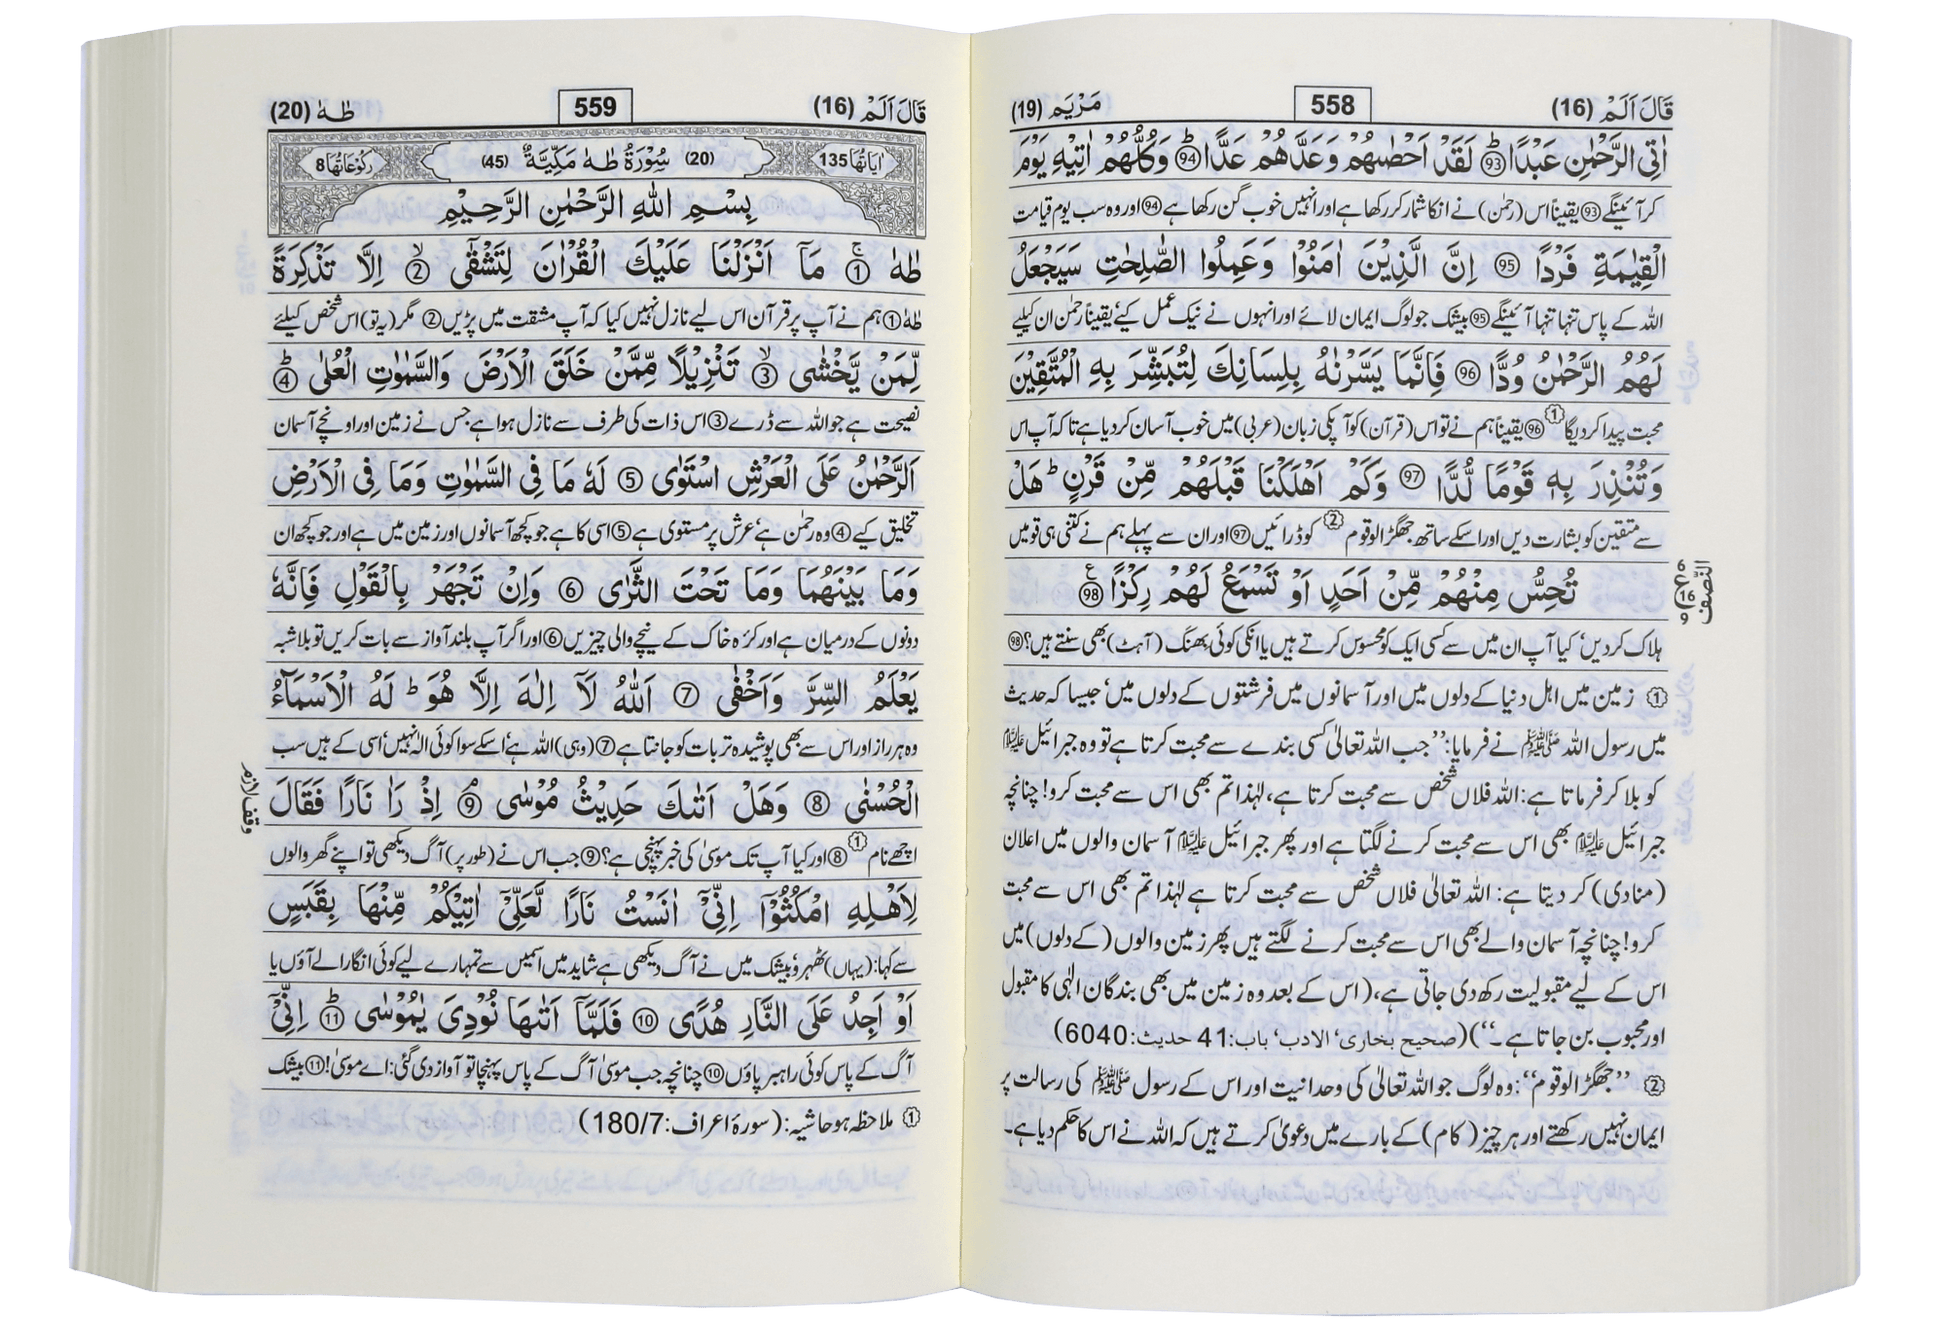 قَالَ اَلَمْ (16)
558
مَرْيَم (19)
اٰتِي الرَّحْمٰنِ عَبْدًا ﴿93﴾ لَقَدْ اَحْصٰىهُمْ وَعَدَّهُمْ عَدًّا ﴿94﴾ وَكُلُّهُمْ اٰتِيْهِ يَوْمَ
کر آئینگے ﴿93﴾ یقیناً اس (رحمٰن) نے انکا شمار کر رکھا ہے اور انہیں خوب گن رکھا ہے ﴿94﴾ اور وہ سب یوم قیامت
الْقِيٰمَةِ فَرْدًا ﴿95﴾ اِنَّ الَّذِيْنَ اٰمَنُوْا وَعَمِلُوا الصّٰلِحٰتِ سَيَجْعَلُ
اللہ کے پاس تنہا تنہا آئینگے ﴿95﴾ بیشک جو لوگ ایمان لائے اور انہوں نے نیک عمل کیے، یقیناً رحمٰن ان کیلیے
لَهُمُ الرَّحْمٰنُ وُدًّا ﴿96﴾ فَاِنَّمَا يَسَّرْنٰهُ بِلِسَانِكَ لِتُبَشِّرَ بِهِ الْمُتَّقِيْنَ
محبت پیدا کر دیگا (1) ﴿96﴾ یقیناً ہم نے تو اس (قرآن) کو آپکی زبان (عربی) میں خوب آسان کر دیا ہے تا کہ آپ اس
وَتُنْذِرَ بِهٖ قَوْمًا لُّدًّا ﴿97﴾ وَكَمْ اَهْلَكْنَا قَبْلَهُمْ مِّنْ قَرْنٍ ؕ هَلْ
سے متقین کو بشارت دیں اور اسکے ساتھ جھگڑالو قوم (2) کو ڈرائیں ﴿97﴾ اور ان سے پہلے ہم نے کتنی ہی قومیں
تُحِسُّ مِنْهُمْ مِّنْ اَحَدٍ اَوْ تَسْمَعُ لَهُمْ رِكْزًا ﴿98﴾
النّصف
16
ہلاک کر دیں، کیا آپ ان میں سے کسی ایک کو محسوس کرتے ہیں یا انکی کوئی بھنگ (آہٹ) بھی سنتے ہیں؟ ﴿98﴾
(1) زمین میں اہل دنیا کے دلوں میں اور آسمانوں میں فرشتوں کے دلوں میں، جیسا کہ حدیث
میں رسول اللہ ﷺ نے فرمایا: ’’جب اللہ تعالیٰ کسی بندے سے محبت کرتا ہے تو وہ جبرائیل علیہ السلام
کو بلا کر فرماتا ہے: اللہ فلاں شخص سے محبت کرتا ہے، لہٰذا تم بھی اس سے محبت کرو! چنانچہ
جبرائیل علیہ السلام بھی اس سے محبت کرنے لگتا ہے اور پھر جبرائیل علیہ السلام آسمان والوں میں اعلان
(منادی) کر دیتا ہے: اللہ تعالیٰ فلاں شخص سے محبت کرتا ہے لہٰذا تم بھی اس سے محبت
کرو! چنانچہ آسمان والے بھی اس سے محبت کرنے لگتے ہیں پھر زمین والوں (کے دلوں) میں
اس کے لیے مقبولیت رکھ دی جاتی ہے، (اس کے بعد وہ زمین میں بھی بندگان الٰہی کا مقبول
اور محبوب بن جاتا ہے۔‘‘) (صحیح بخاری، الادب، باب: 41 حدیث: 6040)
(2) ’’جھگڑالو قوم‘‘: وہ لوگ جو اللہ تعالیٰ کی وحدانیت اور اس کے رسول ﷺ کی رسالت پر
ایمان نہیں رکھتے اور ہر چیز (کام) کے بارے میں دعویٰ کرتے ہیں کہ اللہ نے اس کا حکم دیا ہے۔
قَالَ اَلَمْ (16)
559
طٰهٰ (20)
اٰیَاتُهَا 135
(20) سُوْرَةُ طٰهٰ مَكِّيَّةٌ (45)
رُكُوْعَاتُهَا 8
بِسْمِ اللّٰهِ الرَّحْمٰنِ الرَّحِيْمِ
طٰهٰ ﴿1﴾ مَآ اَنْزَلْنَا عَلَيْكَ الْقُرْاٰنَ لِتَشْقٰٓى ﴿2﴾ اِلَّا تَذْكِرَةً
طٰہٰ ﴿1﴾ ہم نے آپ پر قرآن اس لیے نازل نہیں کیا کہ آپ مشقت میں پڑیں ﴿2﴾ مگر (یہ تو) اس شخص کیلئے
لِّمَنْ يَّخْشٰى ﴿3﴾ تَنْزِيْلًا مِّمَّنْ خَلَقَ الْاَرْضَ وَالسَّمٰوٰتِ الْعُلٰى ﴿4﴾
نصیحت ہے جو اللہ سے ڈرے ﴿3﴾ اس ذات کی طرف سے نازل ہوا ہے جس نے زمین اور اونچے آسمان
اَلرَّحْمٰنُ عَلَى الْعَرْشِ اسْتَوٰى ﴿5﴾ لَهٗ مَا فِي السَّمٰوٰتِ وَمَا فِي الْاَرْضِ
تخلیق کیے ﴿4﴾ وہ رحمٰن ہے، عرش پر مستوی ہے ﴿5﴾ اسی کا ہے جو کچھ آسمانوں اور زمین میں ہے اور جو کچھ ان
وَمَا بَيْنَهُمَا وَمَا تَحْتَ الثَّرٰى ﴿6﴾ وَاِنْ تَجْهَرْ بِالْقَوْلِ فَاِنَّهٗ
دونوں کے درمیان ہے اور کرّہ خاک کے نیچے والی چیزیں ﴿6﴾ اور اگر آپ بلند آواز سے بات کریں تو بلاشبہ
يَعْلَمُ السِّرَّ وَاَخْفٰى ﴿7﴾ اَللّٰهُ لَآ اِلٰهَ اِلَّا هُوَ ؕ لَهُ الْاَسْمَآءُ
وہ ہر راز اور اس سے بھی پوشیدہ تر بات کو جانتا ہے ﴿7﴾ (وہی) اللہ ہے، اسکے سوا کوئی الٰہ نہیں، اسی کے ہیں سب
الْحُسْنٰى ﴿8﴾ وَهَلْ اَتٰىكَ حَدِيْثُ مُوْسٰى ﴿9﴾ اِذْ رَاٰ نَارًا فَقَالَ
وقف لازم
اچھے نام (1) ﴿8﴾ اور کیا آپ تک موسیٰ کی خبر پہنچی ہے؟ ﴿9﴾ جب اس نے (طور پر) آگ دیکھی تو اپنے گھر والوں
لِاَهْلِهِ امْكُثُوْٓا اِنِّيْٓ اٰنَسْتُ نَارًا لَّعَلِّيْٓ اٰتِيْكُمْ مِّنْهَا بِقَبَسٍ
سے کہا: (یہاں) ٹھہرو، بیشک میں نے آگ دیکھی ہے شاید میں اسمیں سے تمہارے لیے کوئی انگارا لے آؤں یا
اَوْ اَجِدُ عَلَى النَّارِ هُدًى ﴿10﴾ فَلَمَّآ اَتٰىهَا نُوْدِيَ يٰمُوْسٰى ﴿11﴾ اِنِّيْٓ
آگ کے پاس کوئی راہبر پاؤں ﴿10﴾ چنانچہ جب موسیٰ آگ کے پاس پہنچا تو آواز دی گئی: اے موسیٰ! ﴿11﴾ بیشک
(1) ملاحظہ ہو حاشیہ: (سورۂ اعراف: 180/7)